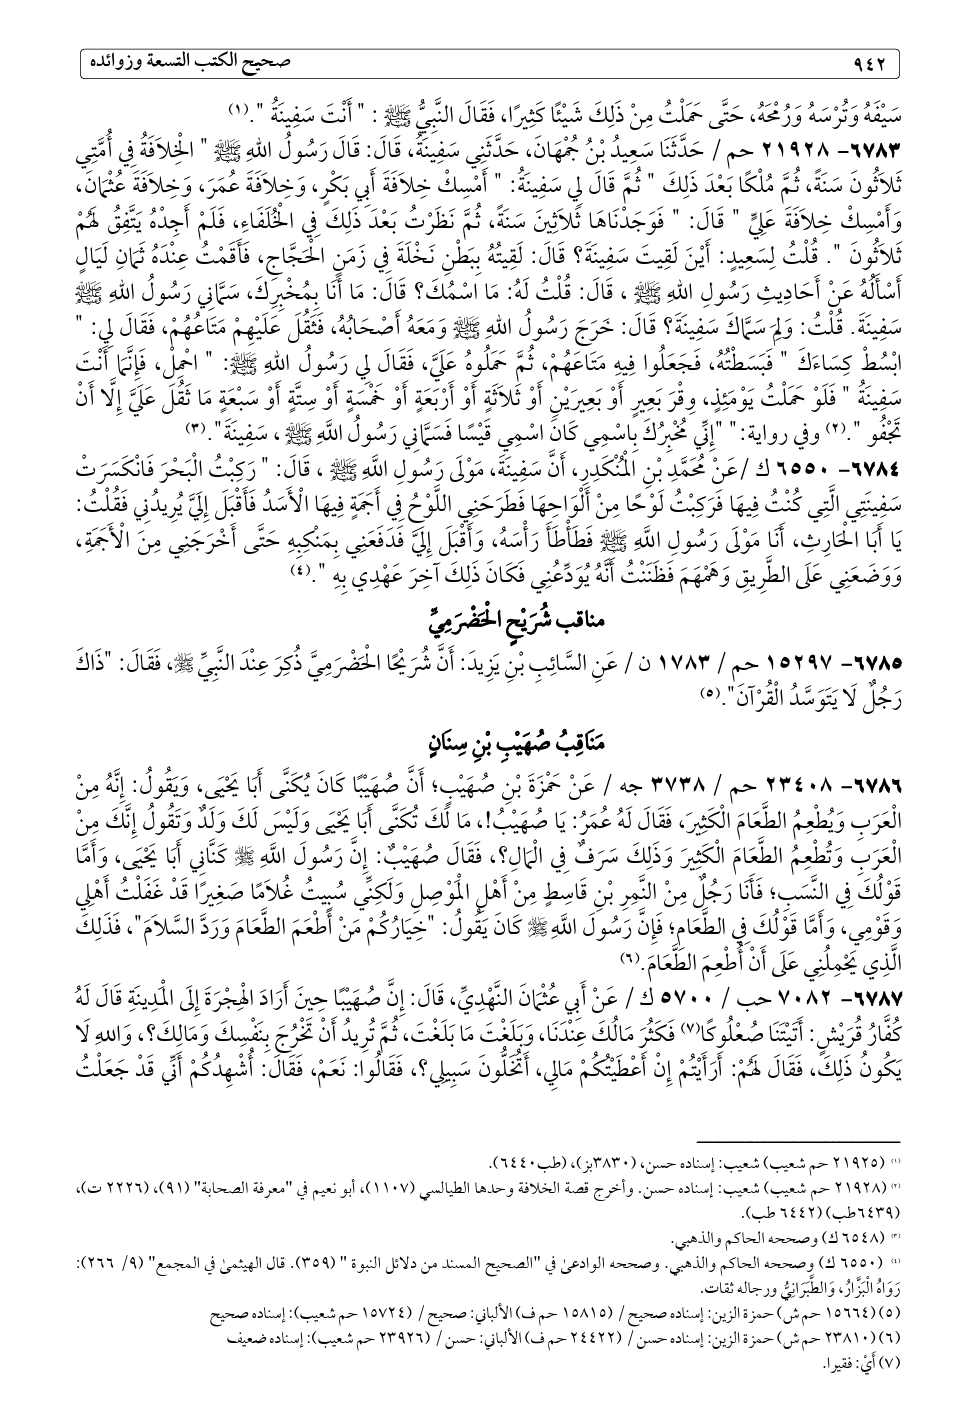 ٩٤٢ صحيح الكتب التسعة وزوائده
سَيْفَهُ وَتُرْسَهُ وَرُمْحَهُ، حَتَّى حَمَلْتُ مِنْ ذَلِكَ شَيْئًا كَثِيرًا، فَقَالَ النَّبِيُّ ﷺ : " أَنْتَ سَفِينَةُ ".(١)
٦٧٨٣- ٢١٩٢٨ حم / حَدَّثَنَا سَعِيدُ بْنُ جُمْهَانَ، حَدَّثَنِي سَفِينَةُ، قَالَ: قَالَ رَسُولُ اللهِ ﷺ " الْخِلَافَةُ فِي أُمَّتِي
ثَلَاثُونَ سَنَةً، ثُمَّ مُلْكًا بَعْدَ ذَلِكَ " ثُمَّ قَالَ لِي سَفِينَةُ: " أَمْسِكْ خِلَافَةَ أَبِي بَكْرٍ، وَخِلَافَةَ عُمَرَ، وَخِلَافَةَ عُثْمَانَ،
وَأَمْسِكْ خِلَافَةَ عَلِيٍّ " قَالَ: " فَوَجَدْنَاهَا ثَلَاثِينَ سَنَةً، ثُمَّ نَظَرْتُ بَعْدَ ذَلِكَ فِي الْخُلَفَاءِ، فَلَمْ أَجِدْهُ يَتَّفِقُ لَهُمْ
ثَلَاثُونَ ". قُلْتُ لِسَعِيدٍ: أَيْنَ لَقِيتَ سَفِينَةَ؟ قَالَ: لَقِيتُهُ بِبَطْنِ نَخْلَةَ فِي زَمَنِ الْحَجَّاجِ، فَأَقَمْتُ عِنْدَهُ ثَمَانِ لَيَالٍ
أَسْأَلُهُ عَنْ أَحَادِيثِ رَسُولِ اللهِ ﷺ ، قَالَ: قُلْتُ لَهُ: مَا اسْمُكَ؟ قَالَ: مَا أَنَا بِمُخْبِرِكَ، سَمَّانِي رَسُولُ اللهِ ﷺ
سَفِينَةَ. قُلْتُ: وَلِمَ سَمَّاكَ سَفِينَةَ؟ قَالَ: خَرَجَ رَسُولُ اللهِ ﷺ وَمَعَهُ أَصْحَابُهُ، فَثَقُلَ عَلَيْهِمْ مَتَاعُهُمْ، فَقَالَ لِي: "
ابْسُطْ كِسَاءَكَ " فَبَسَطْتُهُ، فَجَعَلُوا فِيهِ مَتَاعَهُمْ، ثُمَّ حَمَلُوهُ عَلَيَّ، فَقَالَ لِي رَسُولُ اللهِ ﷺ: " احْمِلْ، فَإِنَّمَا أَنْتَ
سَفِينَةُ " فَلَوْ حَمَلْتُ يَوْمَئِذٍ، وِقْرَ بَعِيرٍ أَوْ بَعِيرَيْنِ أَوْ ثَلَاثَةٍ أَوْ أَرْبَعَةٍ أَوْ خَمْسَةٍ أَوْ سِتَّةٍ أَوْ سَبْعَةٍ مَا ثَقُلَ عَلَيَّ إِلَّا أَنْ
تَجْفُو ".(٢) وفي رواية: " "إِنِّي مُخْبِرُكَ بِاسْمِي كَانَ اسْمِي قَيْسًا فَسَمَّانِي رَسُولُ اللَّهِ ﷺ ، سَفِينَةَ".(٣)
٦٧٨٤- ٦٥٥٠ ك /عَنْ مُحَمَّدِ بْنِ الْمُنْكَدِرِ، أَنَّ سَفِينَةَ، مَوْلَى رَسُولِ اللَّهِ ﷺ ، قَالَ: " رَكِبْتُ الْبَحْرَ فَانْكَسَرَتْ
سَفِينَتِي الَّتِي كُنْتُ فِيهَا فَرَكِبْتُ لَوْحًا مِنْ أَلْوَاحِهَا فَطَرَحَنِي اللَّوْحُ فِي أَجَمَةٍ فِيهَا الْأَسَدُ فَأَقْبَلَ إِلَيَّ يُرِيدُنِي فَقُلْتُ:
يَا أَبَا الْحَارِثِ، أَنَا مَوْلَى رَسُولِ اللَّهِ ﷺ فَطَأْطَأَ رَأْسَهُ، وَأَقْبَلَ إِلَيَّ فَدَفَعَنِي بِمَنْكِبِهِ حَتَّى أَخْرَجَنِي مِنَ الْأَجَمَةِ،
وَوَضَعَنِي عَلَى الطَّرِيقِ وَهَمْهَمَ فَظَنَنْتُ أَنَّهُ يُوَدِّعُنِي فَكَانَ ذَلِكَ آخِرَ عَهْدِي بِهِ ".(٤)
مناقب شُرَيْحٍ الْحَضْرَمِيِّ
٦٧٨٥- ١٥٢٩٧ حم / ١٧٨٣ ن / عَنِ السَّائِبِ بْنِ يَزِيدَ: أَنَّ شُرَيْحًا الْحَضْرَمِيَّ ذُكِرَ عِنْدَ النَّبِيِّ ﷺ، فَقَالَ: "ذَاكَ
رَجُلٌ لَا يَتَوَسَّدُ الْقُرْآنَ".(٥)
مَنَاقِبُ صُهَيْبِ بْنِ سِنَانٍ
٦٧٨٦- ٢٣٤٠٨ حم / ٣٧٣٨ جه / عَنْ حَمْزَةَ بْنِ صُهَيْبٍ؛ أَنَّ صُهَيْبًا كَانَ يُكَنَّى أَبَا يَحْيَى، وَيَقُولُ: إِنَّهُ مِنْ
الْعَرَبِ وَيُطْعِمُ الطَّعَامَ الْكَثِيرَ، فَقَالَ لَهُ عُمَرُ: يَا صُهَيْبُ!، مَا لَكَ تُكَنَّى أَبَا يَحْيَى وَلَيْسَ لَكَ وَلَدٌ وَتَقُولُ إِنَّكَ مِنْ
الْعَرَبِ وَتُطْعِمُ الطَّعَامَ الْكَثِيرَ وَذَلِكَ سَرَفٌ فِي الْمَالِ؟، فَقَالَ صُهَيْبٌ: إِنَّ رَسُولَ اللَّهِ ﷺ كَنَّانِي أَبَا يَحْيَى، وَأَمَّا
قَوْلُكَ فِي النَّسَبِ؛ فَأَنَا رَجُلٌ مِنْ النَّمِرِ بْنِ قَاسِطٍ مِنْ أَهْلِ الْمَوْصِلِ وَلَكِنِّي سُبِيتُ غُلَامًا صَغِيرًا قَدْ غَفَلْتُ أَهْلِي
وَقَوْمِي، وَأَمَّا قَوْلُكَ فِي الطَّعَامِ؛ فَإِنَّ رَسُولَ اللَّهِ ﷺ كَانَ يَقُولُ: "خِيَارُكُمْ مَنْ أَطْعَمَ الطَّعَامَ وَرَدَّ السَّلَامَ"، فَذَلِكَ
الَّذِي يَحْمِلُنِي عَلَى أَنْ أُطْعِمَ الطَّعَامَ.(٦)
٦٧٨٧- ٧٠٨٢ حب / ٥٧٠٠ ك / عَنْ أَبِي عُثْمَانَ النَّهْدِيِّ، قَالَ: إِنَّ صُهَيْبًا حِينَ أَرَادَ الْهِجْرَةَ إِلَى الْمَدِينَةِ قَالَ لَهُ
كُفَّارُ قُرَيْشٍ: أَتَيْتَنَا صُعْلُوكًا(٧) فَكَثُرَ مَالُكَ عِنْدَنَا، وَبَلَغْتَ مَا بَلَغْتَ، ثُمَّ تُرِيدُ أَنْ تَخْرُجَ بِنَفْسِكَ وَمَالِكَ؟، وَاللهِ لَا
يَكُونُ ذَلِكَ، فَقَالَ لَهُمْ: أَرَأَيْتُمْ إِنْ أَعْطَيْتُكُمْ مَالِي، أَتُخَلُّونَ سَبِيلِي؟، فَقَالُوا: نَعَمْ، فَقَالَ: أُشْهِدُكُمْ أَنِّي قَدْ جَعَلْتُ
(١) (٢١٩٢٥ حم شعيب) شعيب: إسناده حسن، (٣٨٣٠بز)، (طب٦٤٤٠).
(٢) (٢١٩٢٨ حم شعيب) شعيب: إسناده حسن. وأخرج قصة الخلافة وحدها الطيالسي (١١٠٧)، أبو نعيم في "معرفة الصحابة" (٩١)، (٢٢٢٦ ت)،
(٦٤٣٩طب) (٦٤٤٢ طب).
(٣) (٦٥٤٨ ك) وصححه الحاكم والذهبي.
(٤) (٦٥٥٠ ك) وصححه الحاكم والذهبي. وصححه الوادعىٰ في "الصحيح المسند من دلائل النبوة " (٣٥٩). قال الهيثمىٰ في المجمع" (٩/ ٢٦٦):
رَوَاهُ الْبَزَّارُ، وَالطَّبَرَانِيُّ ورجاله ثقات.
(٥) (١٥٦٦٤ حم ش) حمزة الزين: إسناده صحيح / (١٥٨١٥ حم ف) الألباني: صحيح / (١٥٧٢٤ حم شعيب): إسناده صحيح
(٦) (٢٣٨١٠ حم ش) حمزة الزين: إسناده حسن / (٢٤٤٢٢ حم ف) الألباني: حسن / (٢٣٩٢٦ حم شعيب): إسناده ضعيف
(٧) أَيْ: فقيرا.